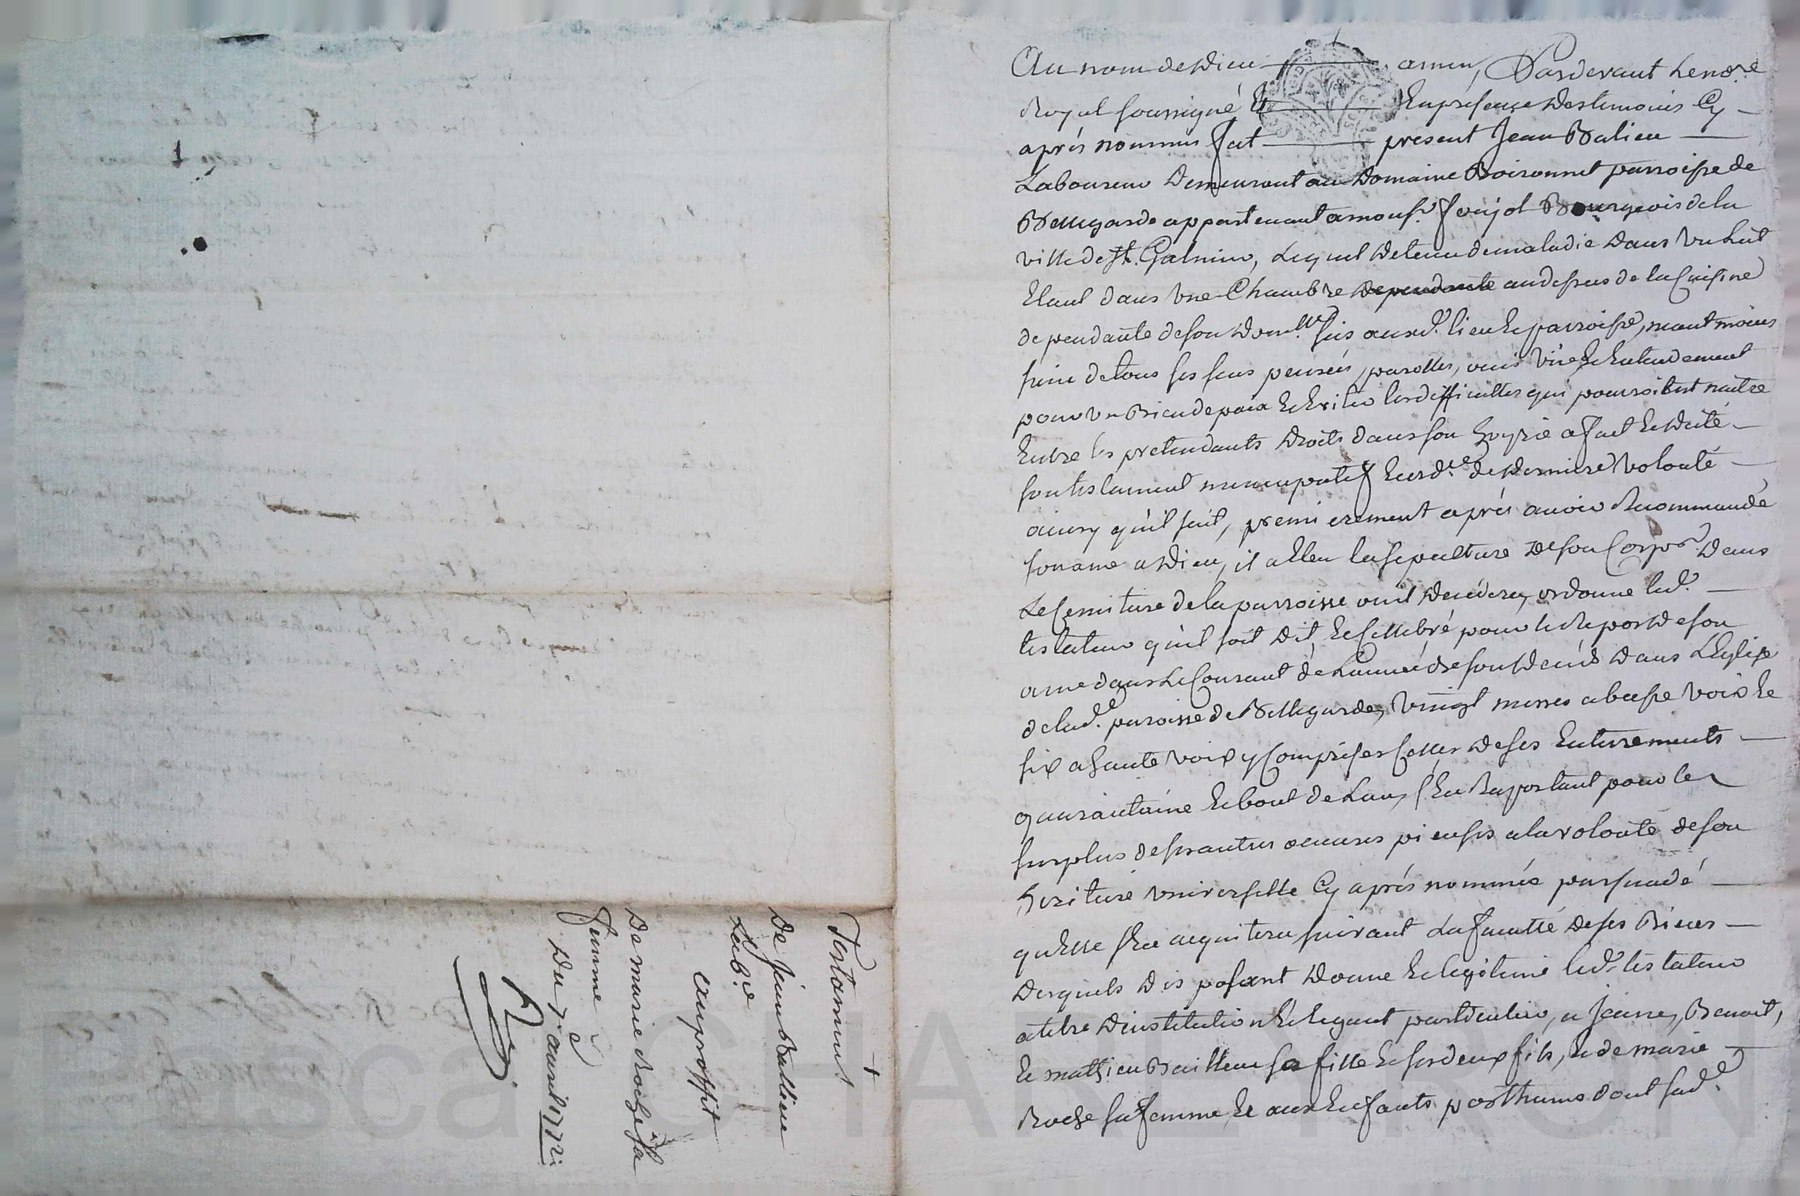 Testament
De Jean Balieu
Lab.r
au proffit
De marie Roche Sa
femme
Du 7e avril 1772
Au nom de Dieu amen, Pardevant Le no.re
Royal soussigné Et En presence Des temoins Cy
aprés nommés fut present Jean Balieu
Laboureur Demeurant au Domaine Boisonnet parroisse de
Bellegarde appartenant a mons.r Poujol Bourgeois de la
ville de St. Galmier, Lequel Detenu de maladie Dans Un Lit
Etant dans Une Chambre dependante audessus de la Cuisine
dependante de son Dom.lle sis aux d. lieu Et parroisse, neant moins
sain de tous ses sens pensées, parolles, ouis vüe Et Entendement
pour Un Bien de paix Et Eviter les difficultes qui pourroient naitre
Entre les pretendants Droits dans son hoyrie a fait Et Dicté
son testament nuncupatif Et ord.ce de Derniere Volonté
ainsy qu'il suit, premierement aprés avoir Recommandé
son ame a Dieu, il a Eleu la sepulture De son Corps Dans
Le Cemitiere de la parroisse ou il Decedera, ordonne led.
testateur qu'il soit Dit Et Cellebré pour le Repos De son
ame dans Le Courant de L'année De son Decés Dans L'Eglise
de lad.e parroisse de Bellegarde, Vingt messes a basse Voix Et
six a haute voix y Comprises Celles De ses Enterrements
quarantaine Et bout de L'an, s'En Raportant pour le
surplus de ses autres oeuvres pieuses a la volonté de son
heritiere universelle Cy aprés nommée persuadé
qu'Elle s'En acquitera suivant La faculté De ses Biens
Desquels Disposant Donne Et legue led. testateur
a titre D'institution Et Legat particulier, a Jeanne, Benoit,
Et mathieu Baillieu sa fille Et ses deux fils, Et de marie
Roche sa femme, Et aux Enfants posthumes dont sad.e